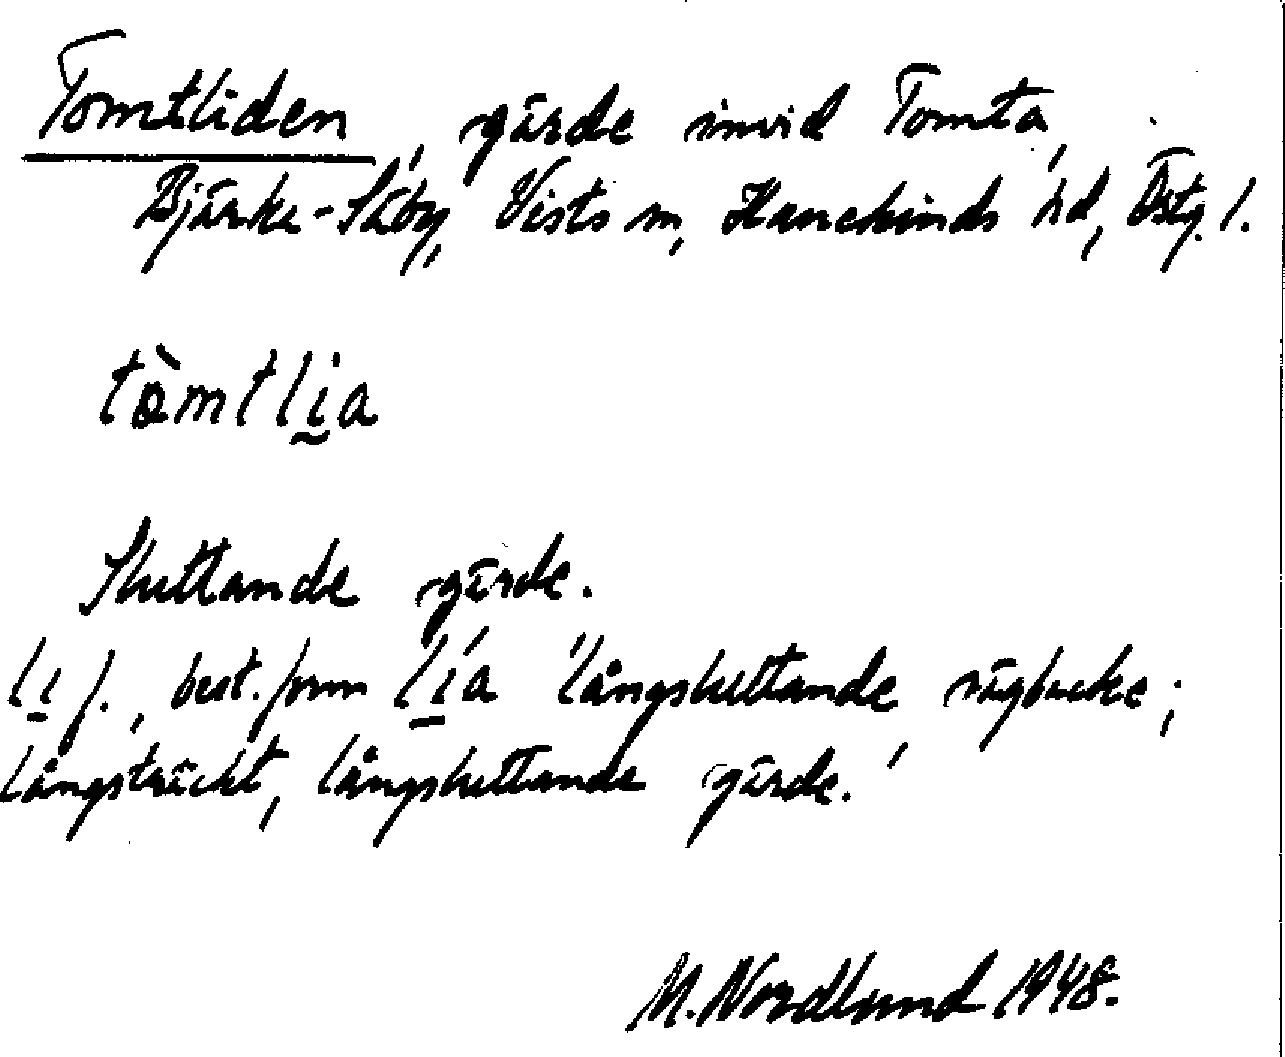 Tomtliden, gärde invid Tomta,
Bjärka-Säby, Vists sn, Hanekinds hd, Östg. l.
tòmtli̲a
Sluttande gärde.
li̲ f., best. form lí̲a 'långsluttande vägbacke;
långsträckt, långsluttande gärde.'
M. Nordlund 1948.